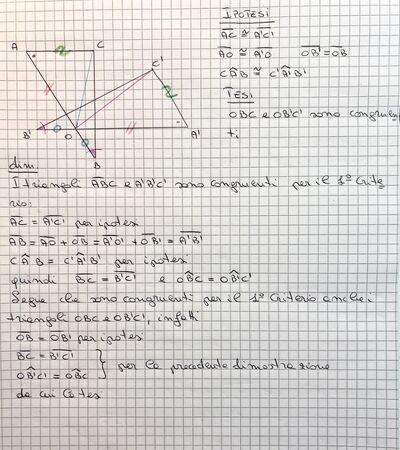 IPOTESI
AC ≅ A'C'
AO ≅ A'O OB' = OB
CÂB ≅ C'Â'B'
TESI
OBC e OB'C' sono congruen
ti.
A
C
C'
B'
O
A'
B
dim.
I triangoli ABC e A'B'C' sono congruenti per il 1° Crite
rio:
AC = A'C' per ipotesi
AB = AO + OB = A'O' + OB' = A'B'
CÂB = C'Â'B' per ipotesi
quindi BC = B'C' e OB̂C = OB̂'C'
Segue che sono congruenti per il 1° Criterio anche i
triangoli OBC e OB'C', infatti
OB = OB' per ipotesi
BC = B'C'
OB̂'C' = OB̂C } per la precedente dimostrazione
da cui la tesi